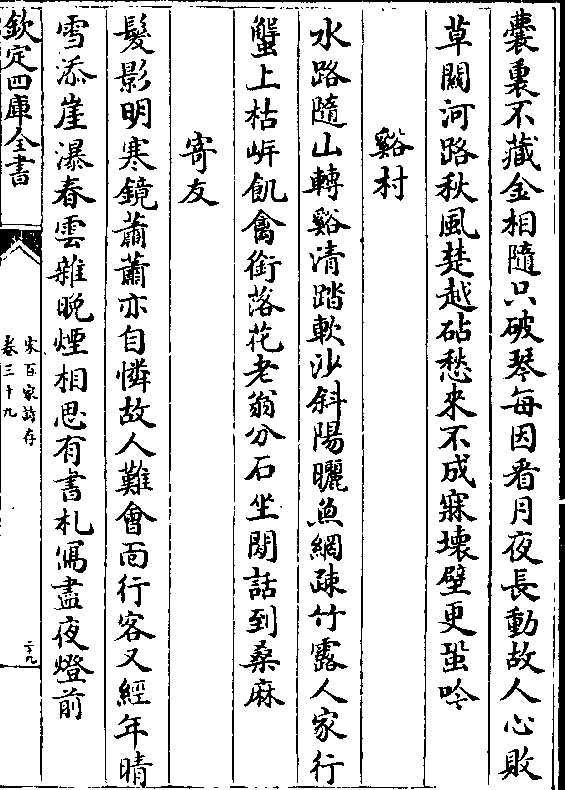 囊裏不藏金相隨只破琴每因看月夜長動故人心敗
草關河路秋風楚越砧愁来不成寐壊壁更蛩吟
谿村
水路隨山轉谿清踏軟沙斜陽曬魚網疎竹露人家行
蟹上枯岸飢禽銜落花老翁分石坐閒話到桑麻
寄友
髮影明寒鏡蕭蕭亦自憐故人難會面行客又經年晴
雪添崖瀑春雲雜晩煙相思有書札寫盡夜燈前
欽定四庫全書
宋百家詩存
卷三十九
二九